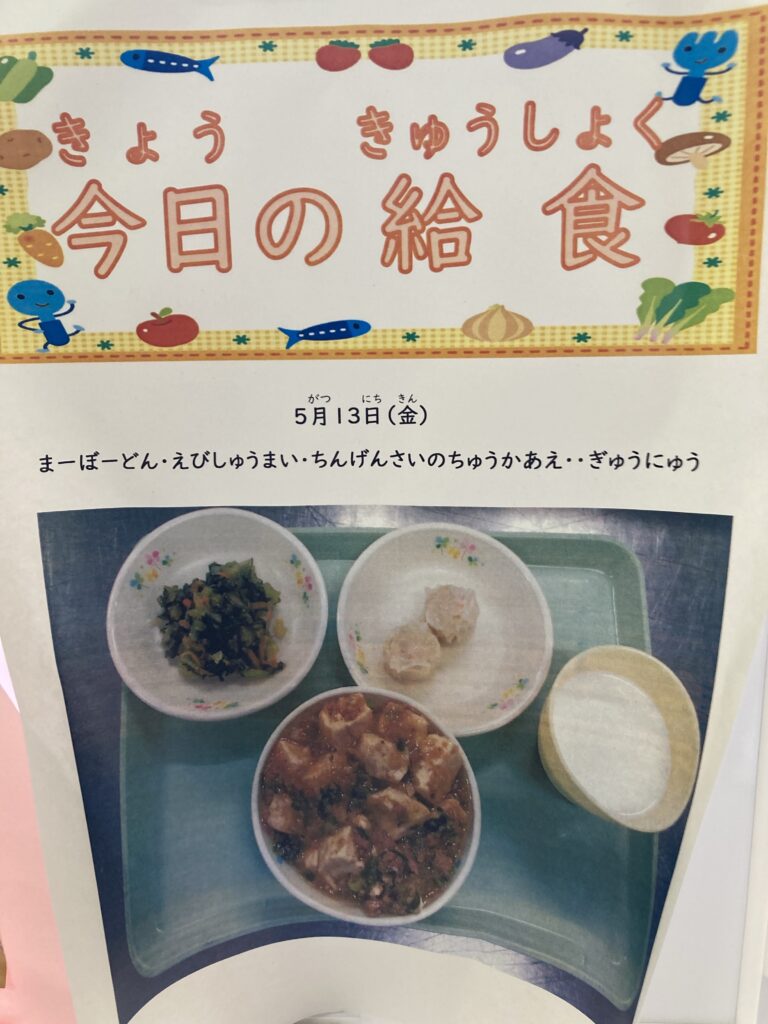 きょう きゅうしょく
今日の給食
がつ にち きん
5月13日(金)
まーぼーどん・えびしゅうまい・ちんげんさいのちゅうかあえ・・ぎゅうにゅう